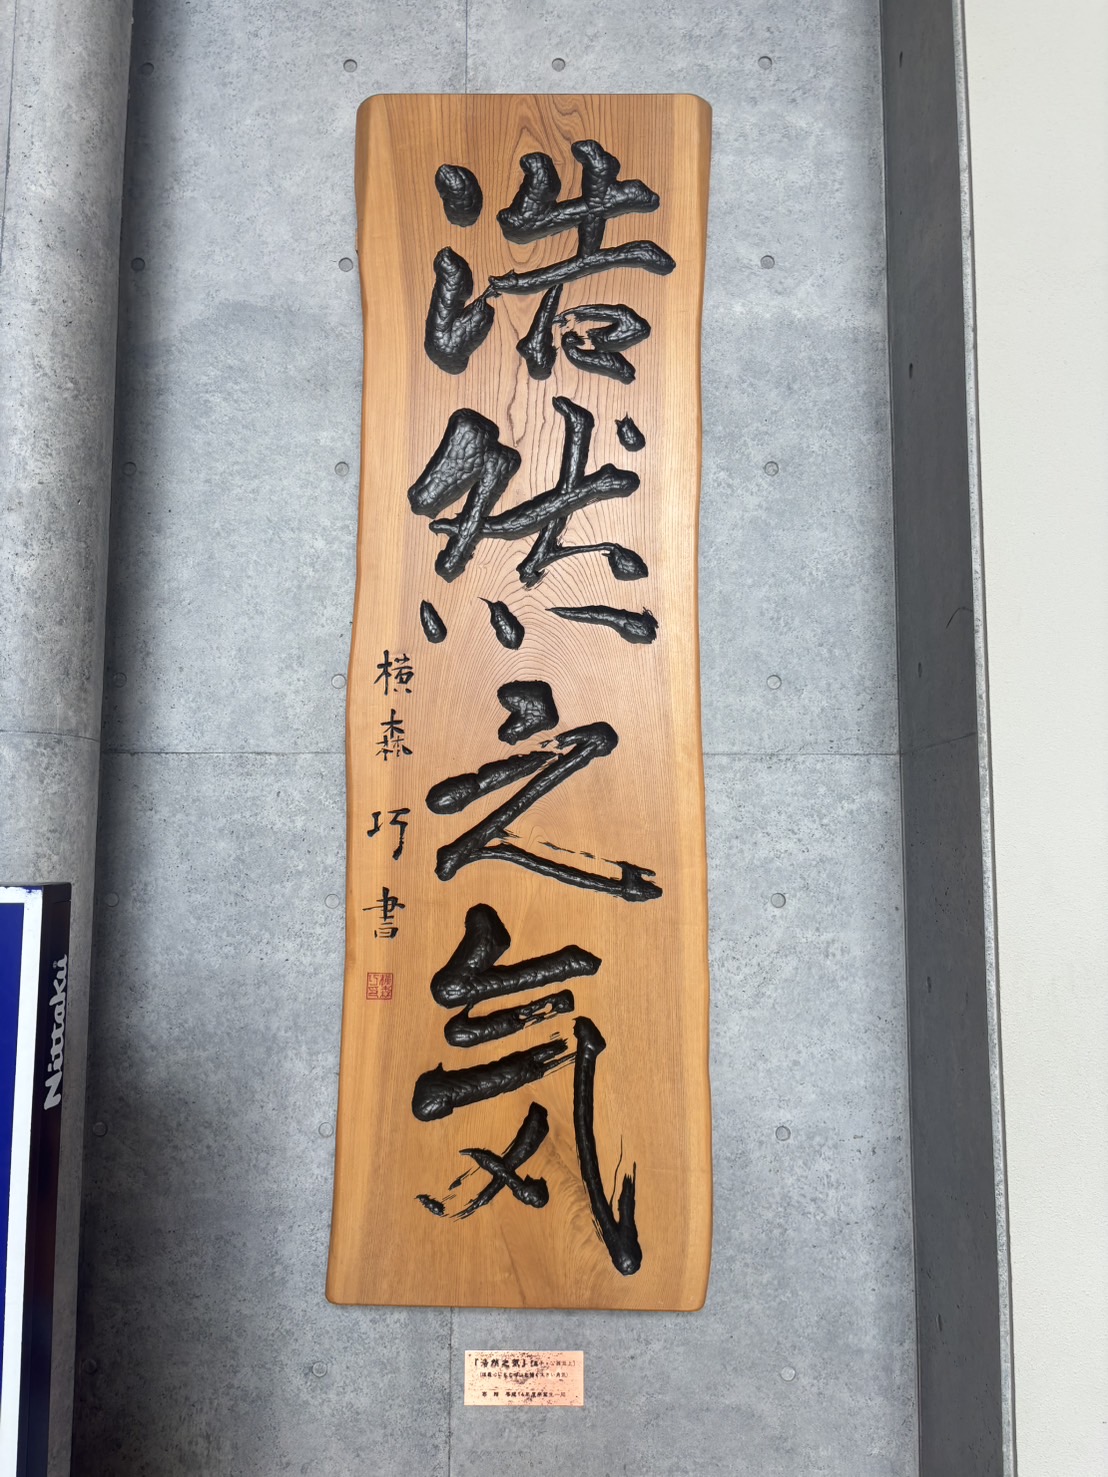 浩然之気
横森 巧 書
Nittaku
『浩然之気』